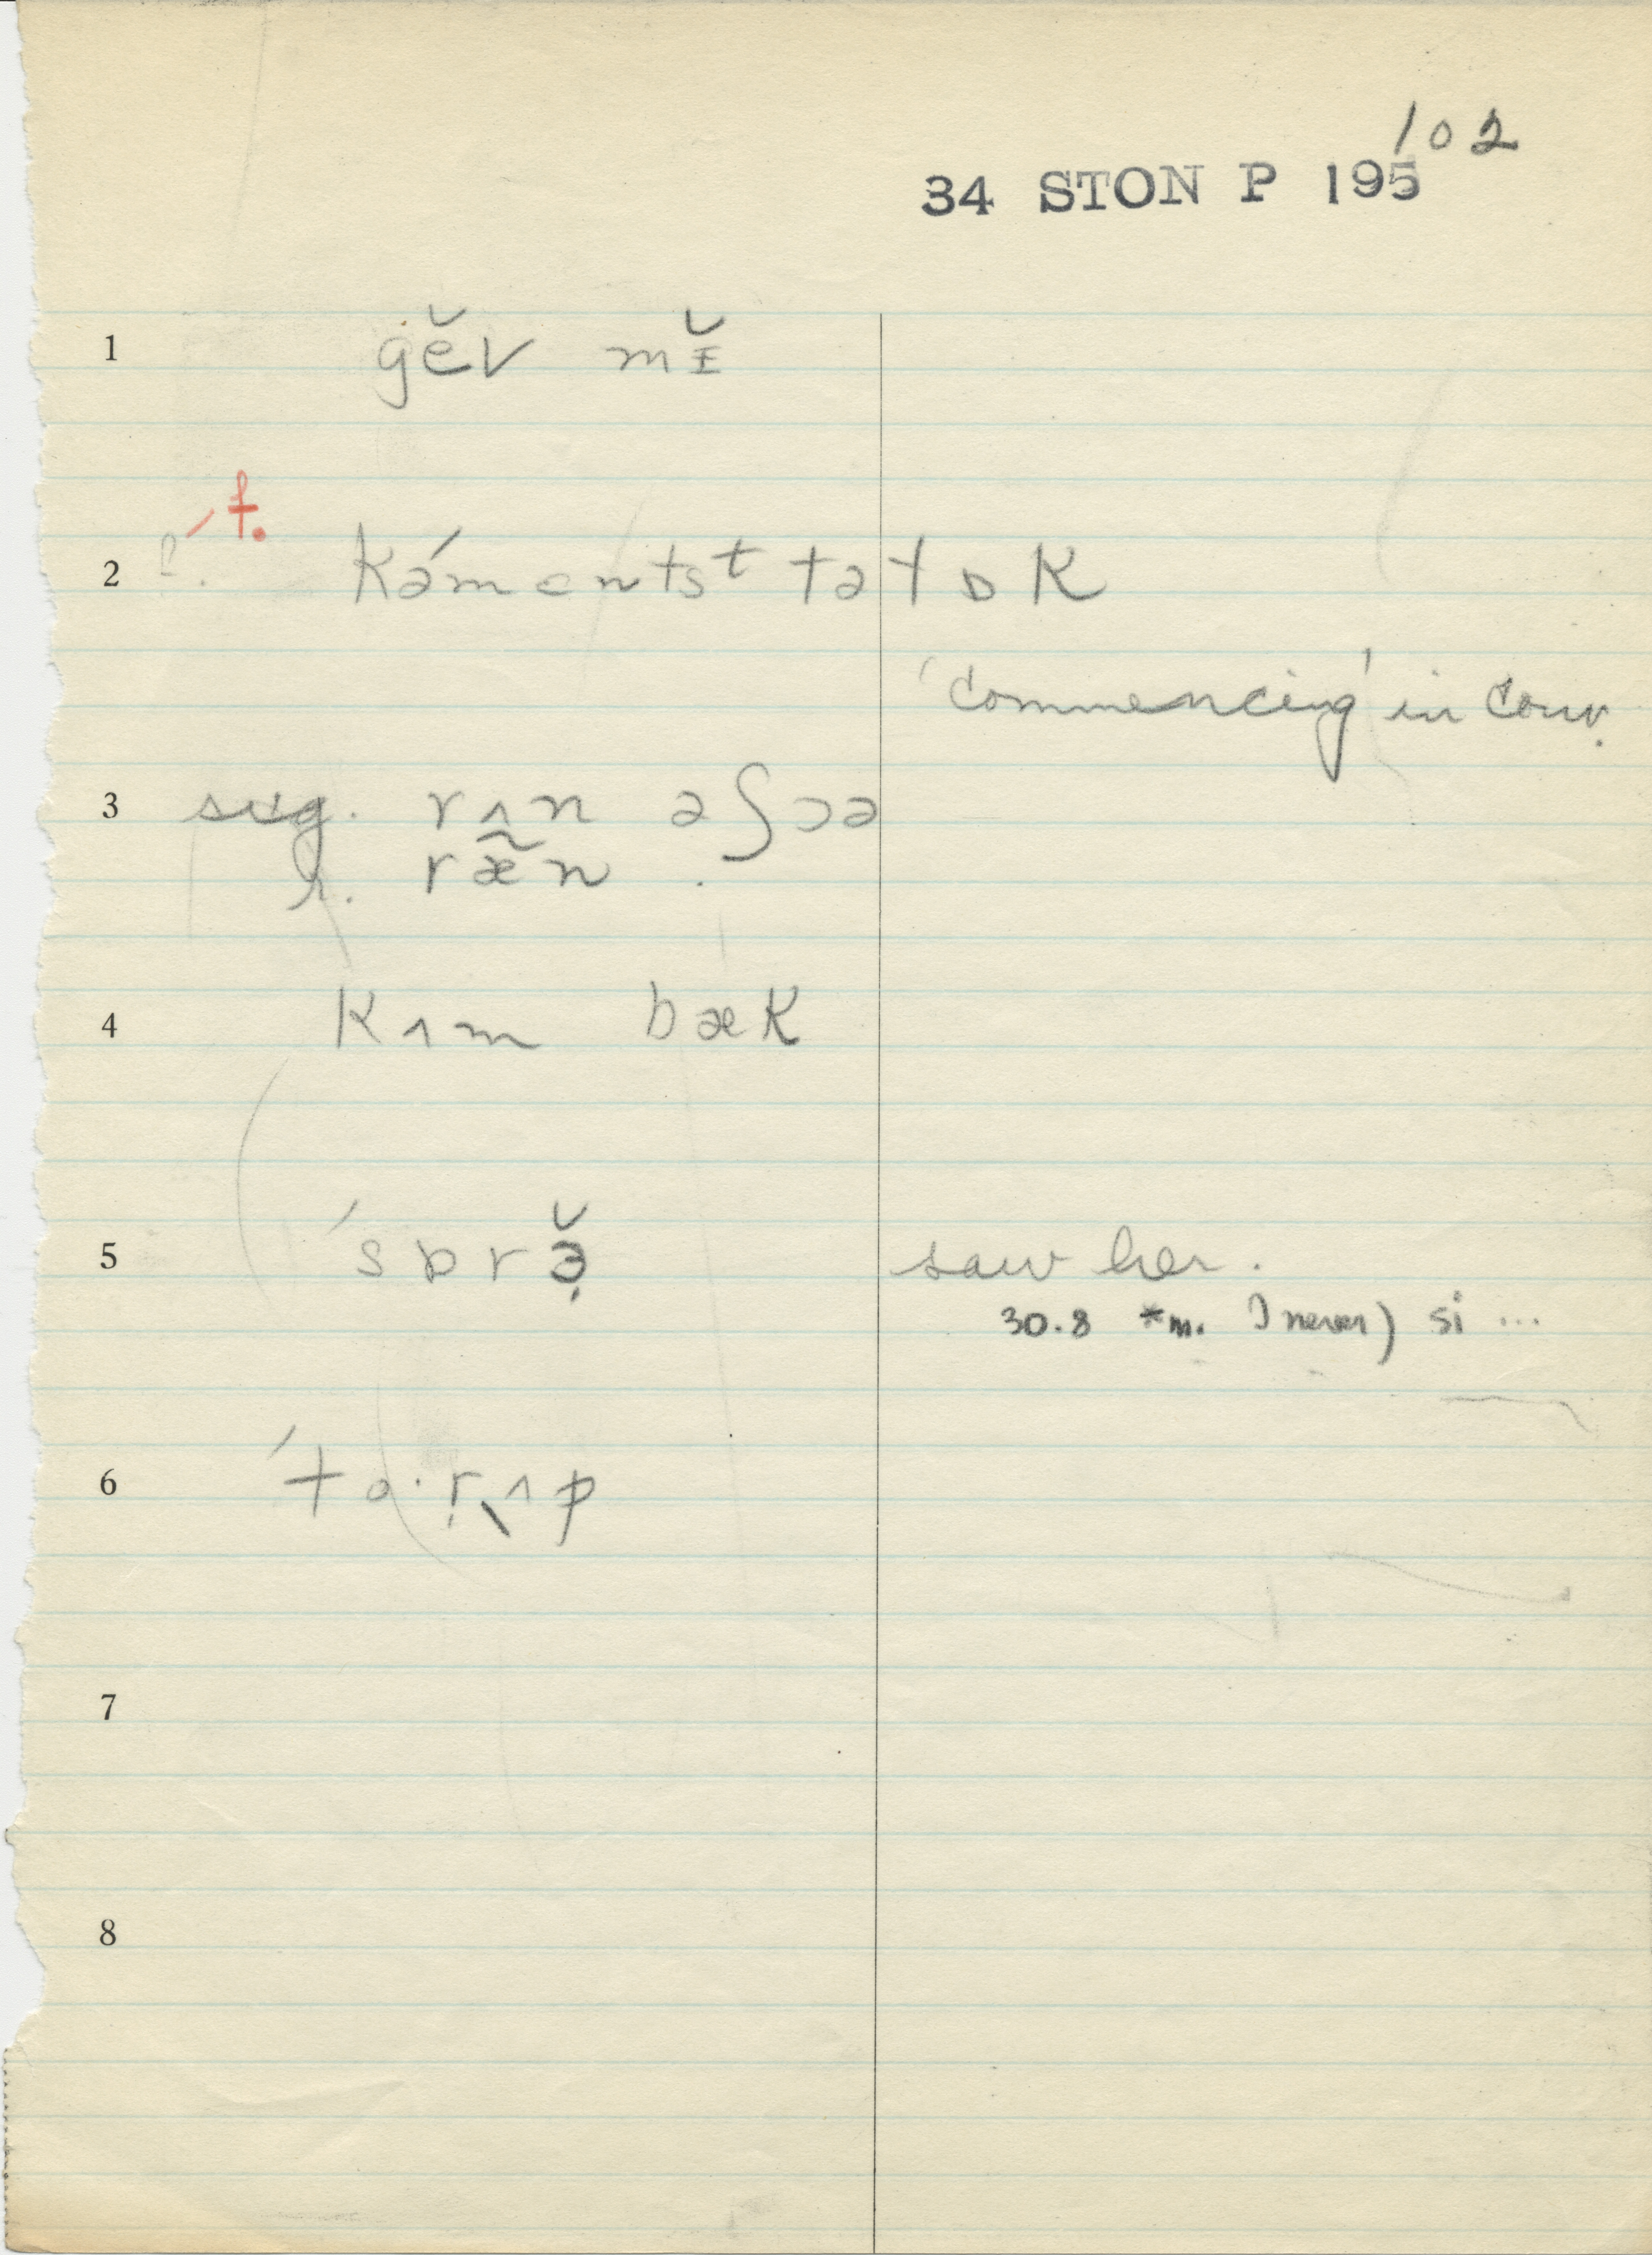 102
34 STON P 195
1 gɛ̆v mɪ̆
′ t.
2 kəmentsᵗ tətɒk
'commencing' in conv.
3 sug. rʌn əʃɔə
r. ræ̃n .
4 kʌm bæk
5 ′sɒrɜ̣̆ saw her.
30.8 *m. I never) si ...
6 ′tɑ·ṛʌp
7
8